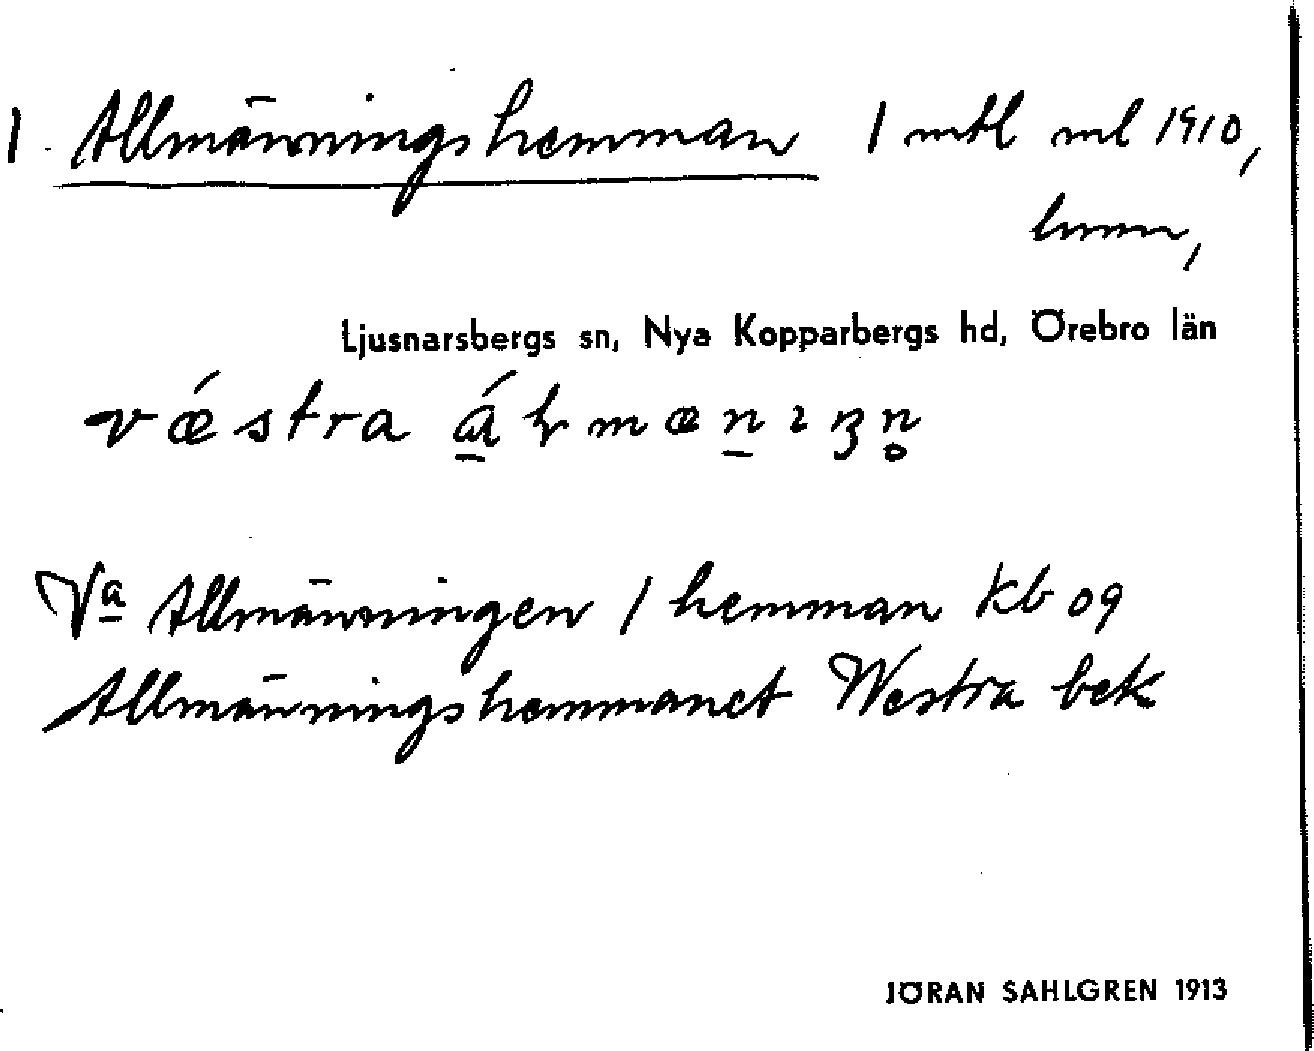 1 Allmänningshemman 1 mtl ml 1910,
hmn,
Ljusnarsbergs sn, Nya Kopparbergs hd, Örebro län
vǽstra
Va Allmänningen 1 hemman Kb 09
Allmänningshemmanet Westra bek
JÖRAN SAHLGREN 1913